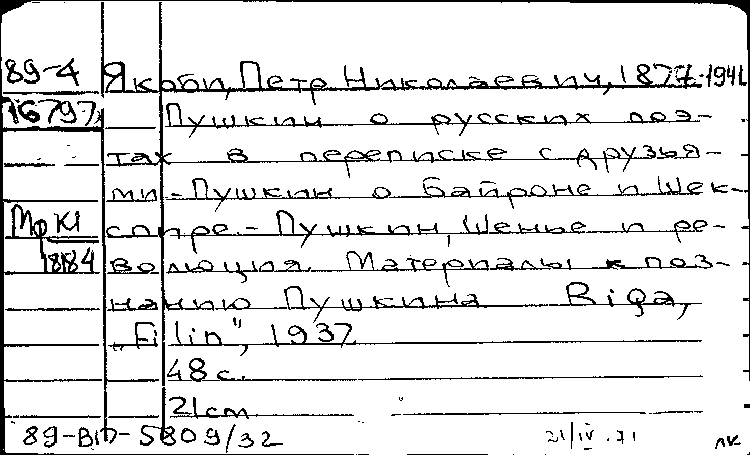 89-4 Якоби, Петр Николаевич, 1877-1941
16797 Пушкин о русских поэ-
тах в переписке с друзья-
ми - Пушкин о Байроне и Шек-
Мф К1 спире. - Пушкин, Шенье и ре-
18184 волюция. Материалы к поз-
нанию Пушкина Riga,
„Filin", 1937
48 с.
21 см.
89-ВП-5809/32 21/IV.71 ЛК